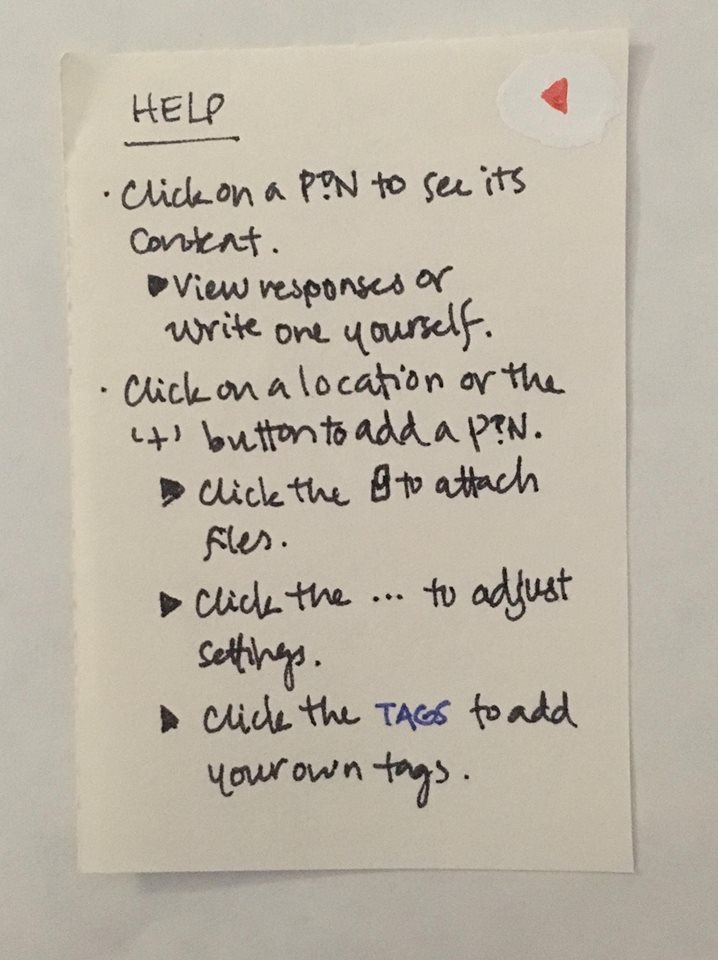 HELP
· Click on a P?N to see its
content.
▶ View responses or
write one yourself.
· Click on a location or the
'+' button to add a P?N.
▶ Click the to attach
files.
▶ Click the ... to adjust
settings.
▶ Click the TAGS to add
your own tags.